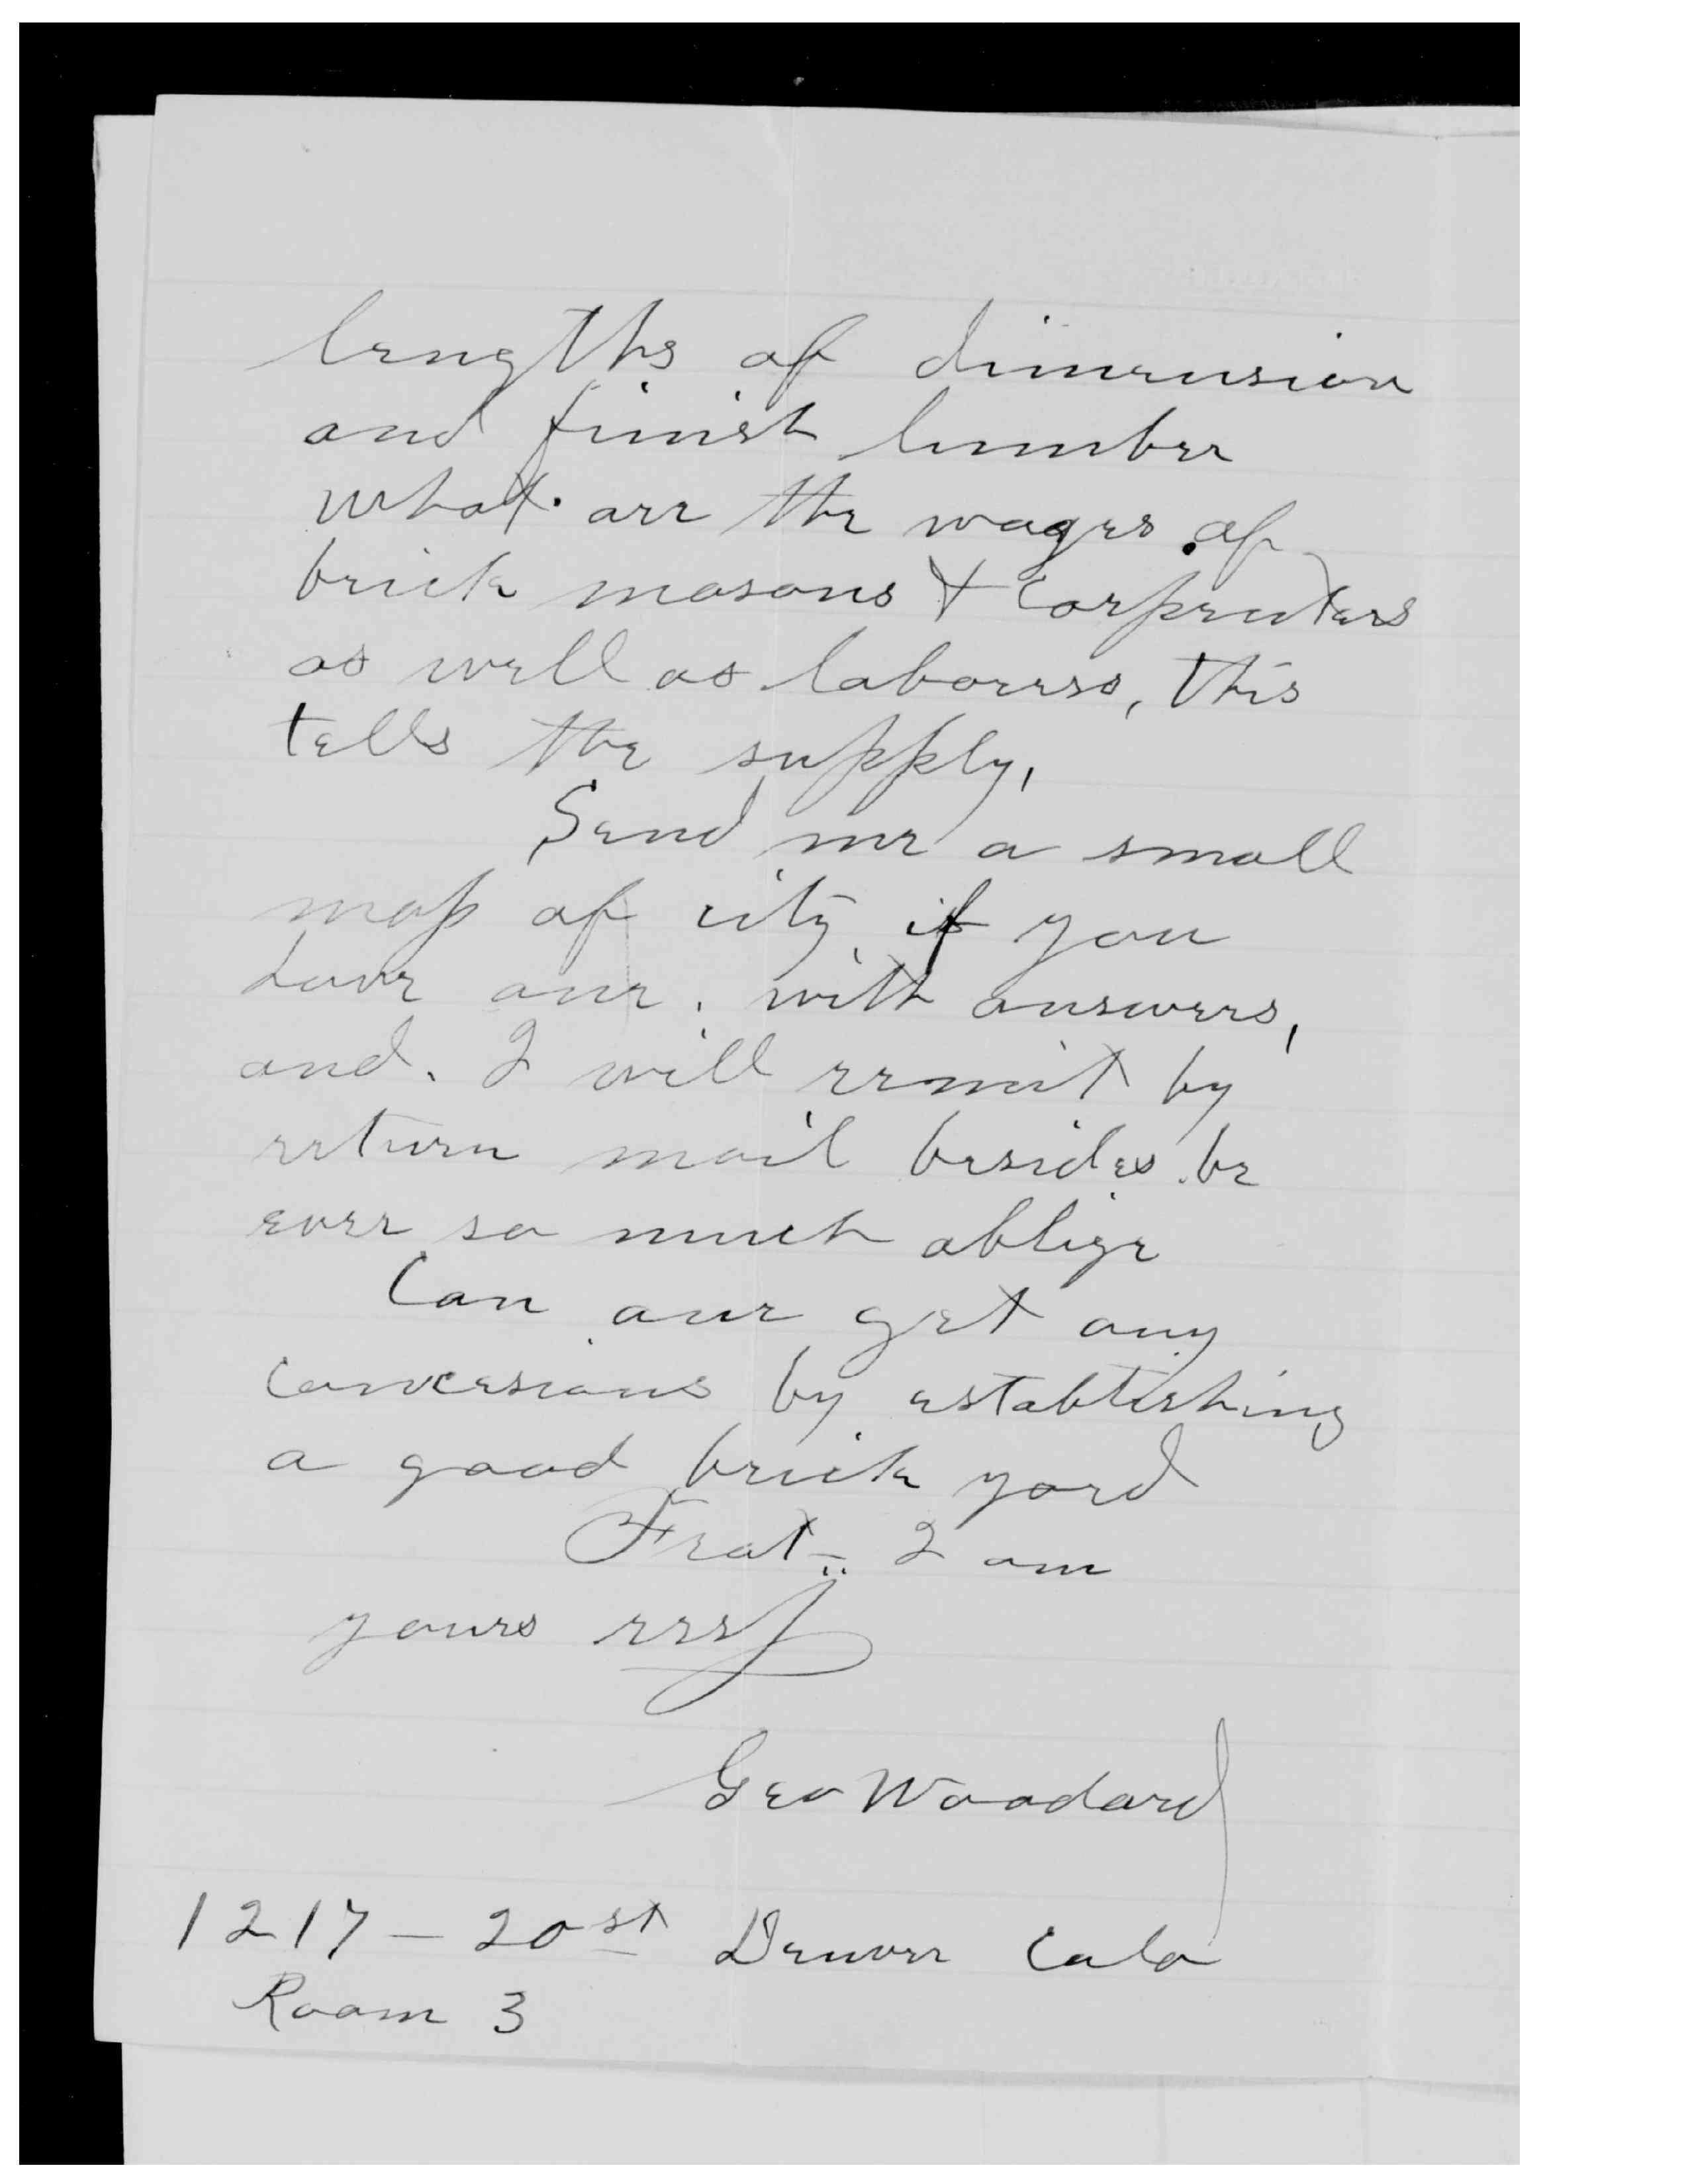 lengths of dimension
and finish lumber
what are the wages of
brick masons & Carpenters
as well as laborers, this
tells the supply,
Send me a small
map of city, if you
have one, with answers,
and. I will remit by
return mail besides be
ever so much oblige
Can one get any
concesions by establishing
a good brick yard
Frat- I am
yours
Geo Woodard
1217 - 20 st Denver Colo
Room 3